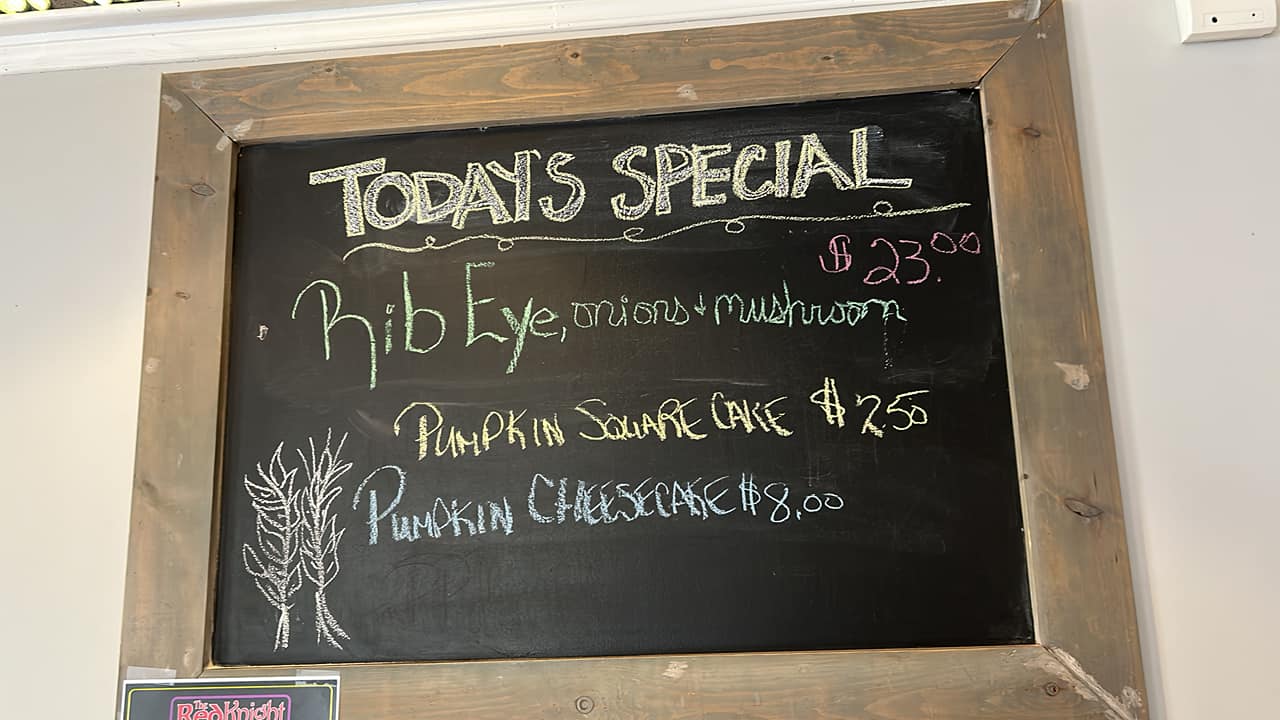 TODAY'S SPECIAL
$23.00
Rib Eye, onions + mushroom
PUMPKIN SQUARE CAKE $2.50
PUMPKIN CHEESECAKE $8.00
The
Red Knight